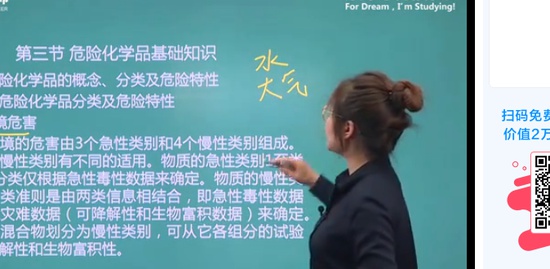 For Dream, I'm Studying!
第三节 危险化学品基础知识
水
大气
险化学品的概念、分类及危险特性
危险化学品分类及危险特性
境危害
境的危害由3个急性类别和4个慢性类别组成。
慢性类别有不同的适用。物质的急性类别1至类
分类仅根据急性毒性数据来确定。物质的慢性类
类准则是由两类信息相结合，即急性毒性数据
灾难数据（可降解性和生物富积数据）来确定。
混合物划分为慢性类别，可从它各组分的试验
解性和生物富积性。
扫码免费
价值2万